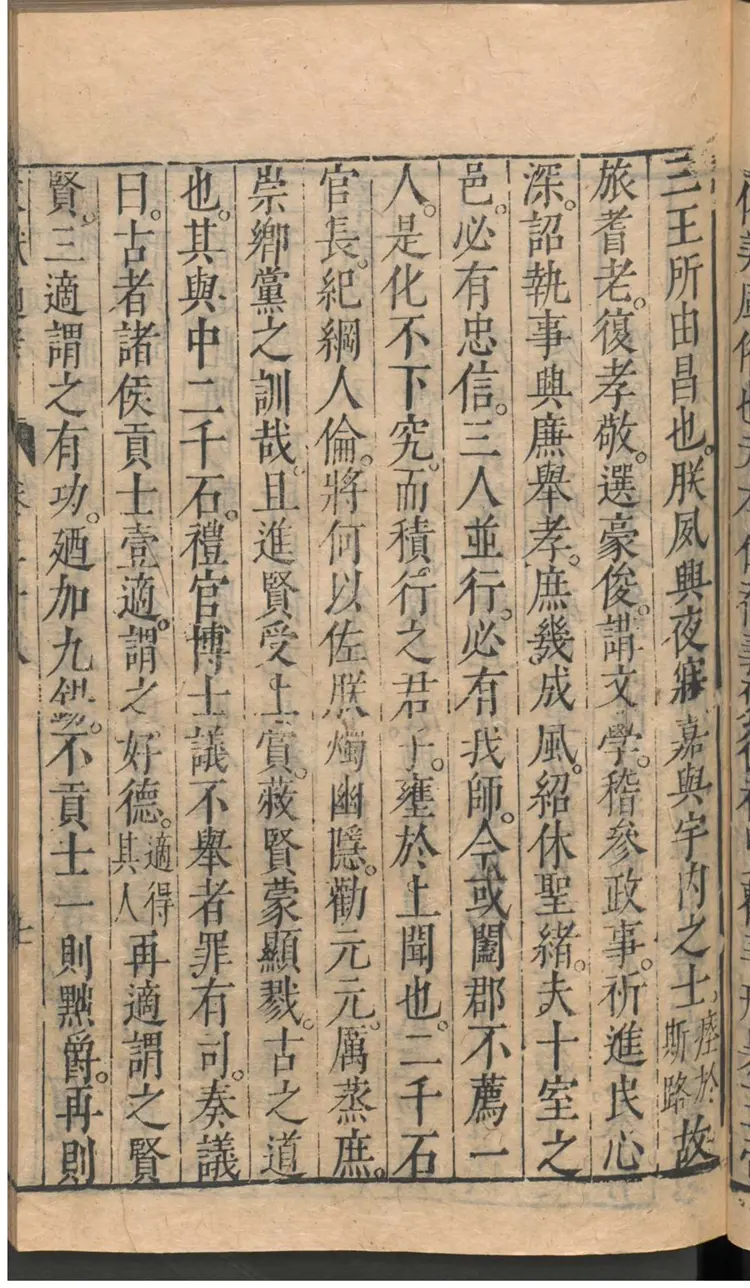 三王所由昌也。朕夙興夜寐嘉與宇內之士。臻於斯路故
旅耆老。復孝敬。選豪俊。講文學。稽參政事。祈進民心
深。詔執事興廉舉孝。庶幾成風。紹休聖緒。夫十室之
邑。必有忠信。三人並行。必有我師。今或闔郡不薦一
人。是化不下究。而積行之君子。壅於上聞也。二千石
官長。紀綱人倫。將何以佐朕燭幽隱。勸元元。厲蒸庶。
崇鄉黨之訓哉。且進賢受上賞。蔽賢蒙顯戮。古之道
也。其與中二千石。禮官博士議不舉者罪有司。奏議
曰。古者諸侯貢士壹適。謂之好德。適得其人再適謂之賢
賢。三適謂之有功。廼加九錫。不貢士一則黜爵。再則